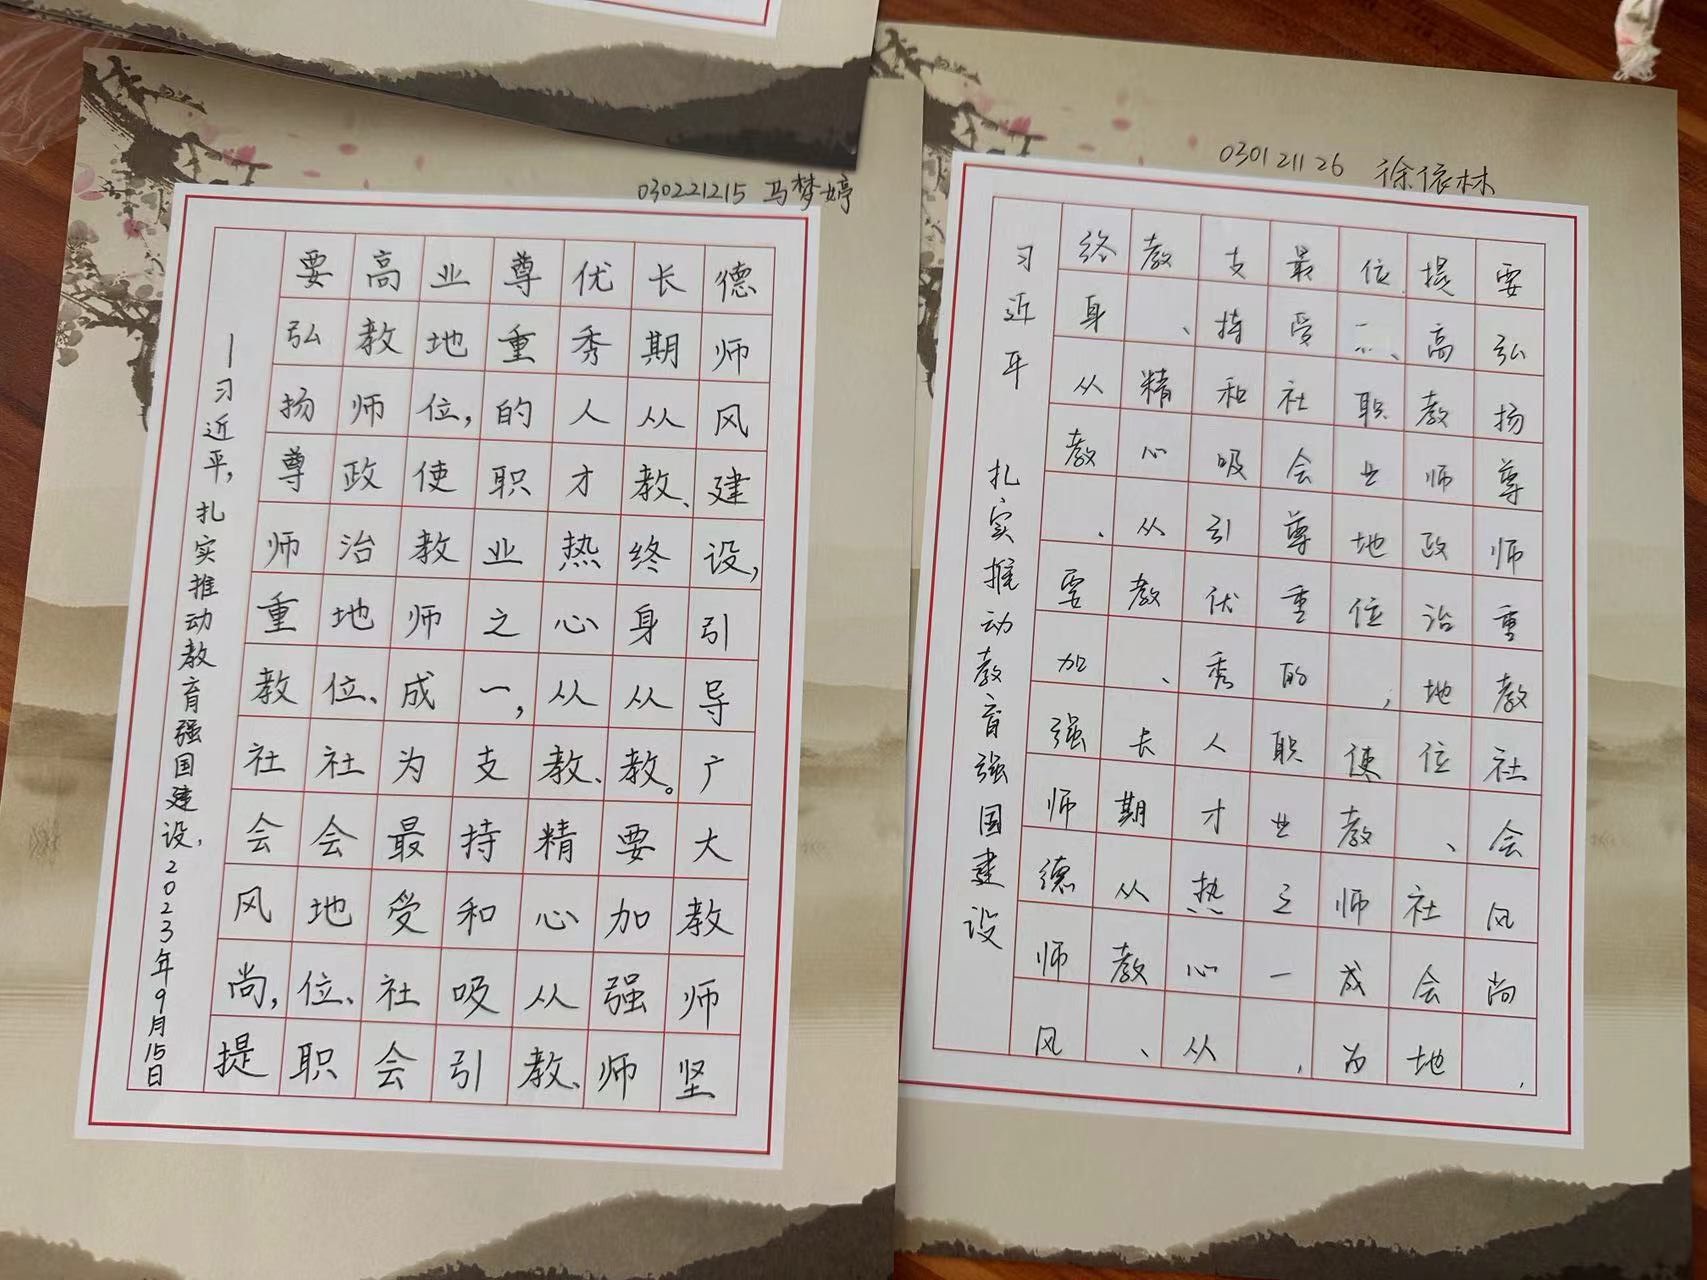 030221215 马梦婷
要弘扬尊师重教社会风尚,提
高教师政治地位、社会地位、职
业地位,使教师成为最受社会
尊重的职业之一,支持和吸引
优秀人才热心从教、精心从教、
长期从教、终身从教。要加强师
德师风建设,引导广大教师坚
—习近平,扎实推动教育强国建设,2023年9月15日
030121126 徐依林
要弘扬尊师重教社会风尚,
提高教师政治地位、社会地
位、职业地位,使教师成为
最受社会尊重的职业之一,
支持和吸引优秀人才热心从
教、精心从教、长期从教、
终身从教、要加强师德师风
习近平 扎实推动教育强国建设